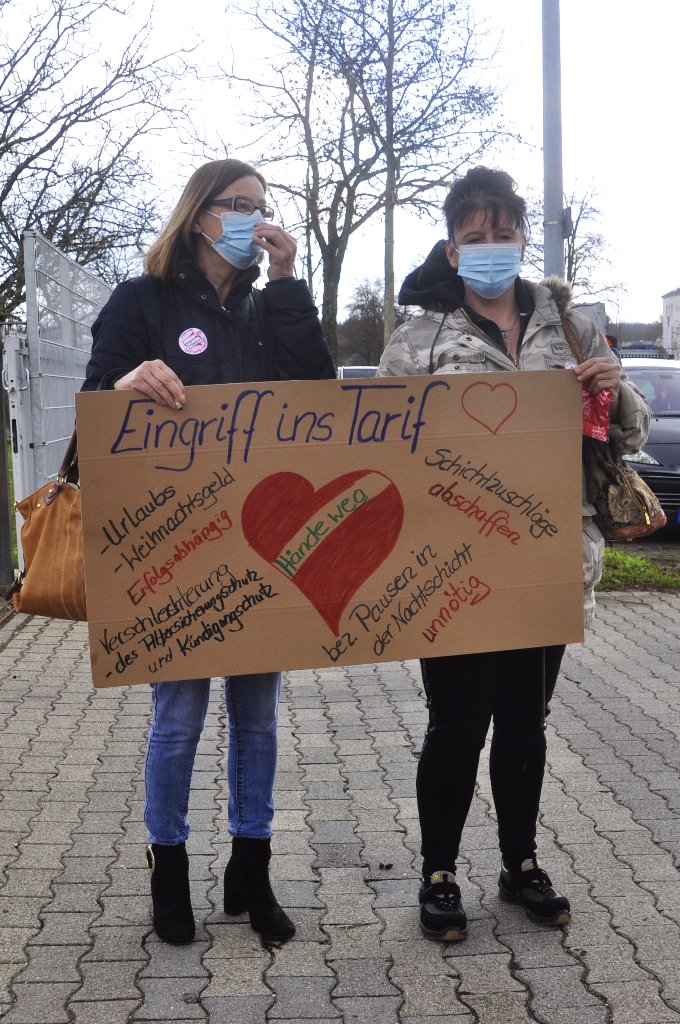 Eingriff ins Tarif
-Urlaubs
-Weihnachtsgeld
Erfolgsabhängig
Verschlechterung
-des Altersicherungsschutz
und Kündigungsschutz
Hände weg
Schichtzuschläge
abschaffen
bez Pausen in
der Nachtschicht
unnötig